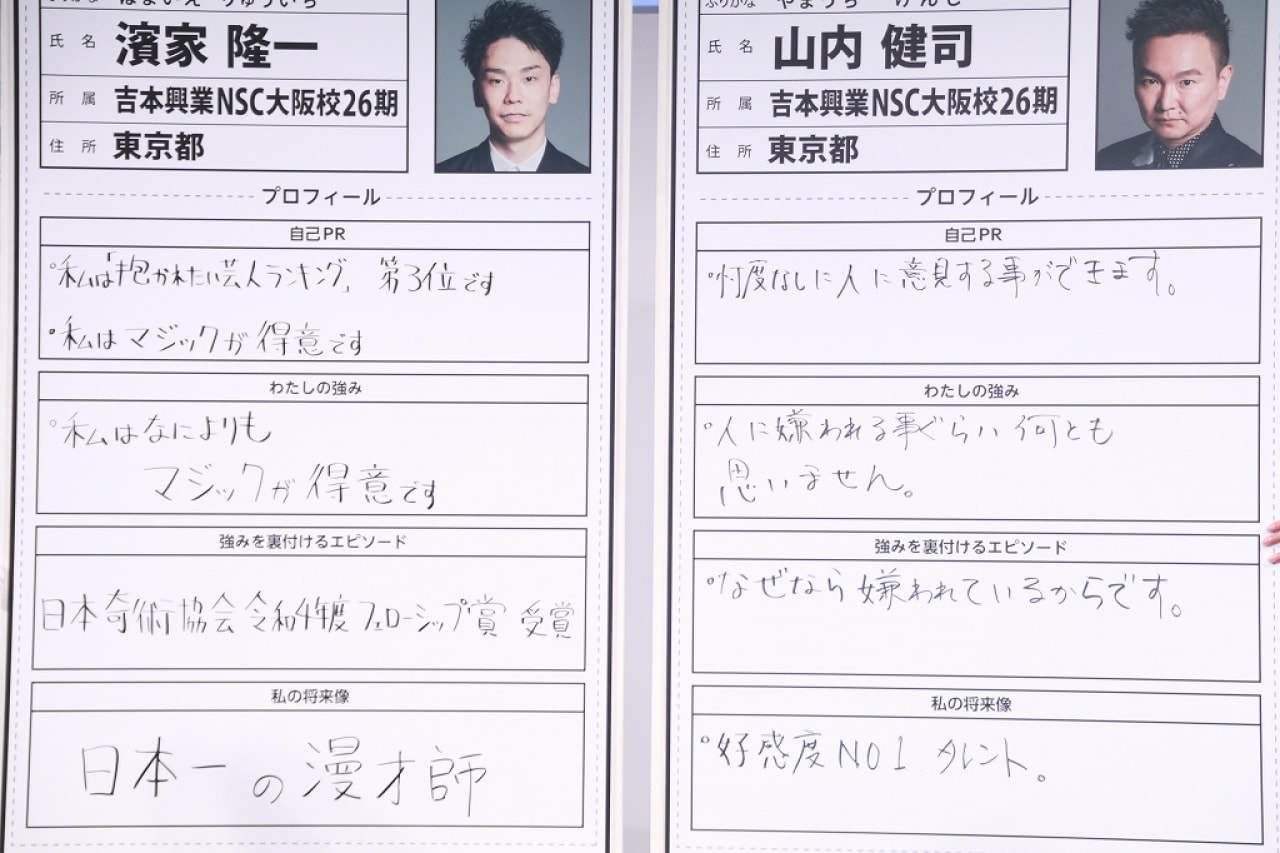 ふりがな はまいえ りゅういち
氏名 濱家 隆一
所属 吉本興業NSC大阪校26期
住所 東京都
プロフィール
自己PR
・私は「抱かれたい芸人ランキング」 第3位です
・私はマジックが得意です
わたしの強み
・私はなによりも
マジックが得意です
強みを裏付けるエピソード
日本奇術協会 令和4年度 フェローシップ賞 受賞
私の将来像
日本一の漫才師
ふりがな やまうち けんじ
氏名 山内 健司
所属 吉本興業NSC大阪校26期
住所 東京都
プロフィール
自己PR
・忖度なしに人に意見する事ができます。
わたしの強み
・人に嫌われる事ぐらい何とも
思いません。
強みを裏付けるエピソード
・なぜなら嫌われているからです。
私の将来像
・好感度NO1 タレント。